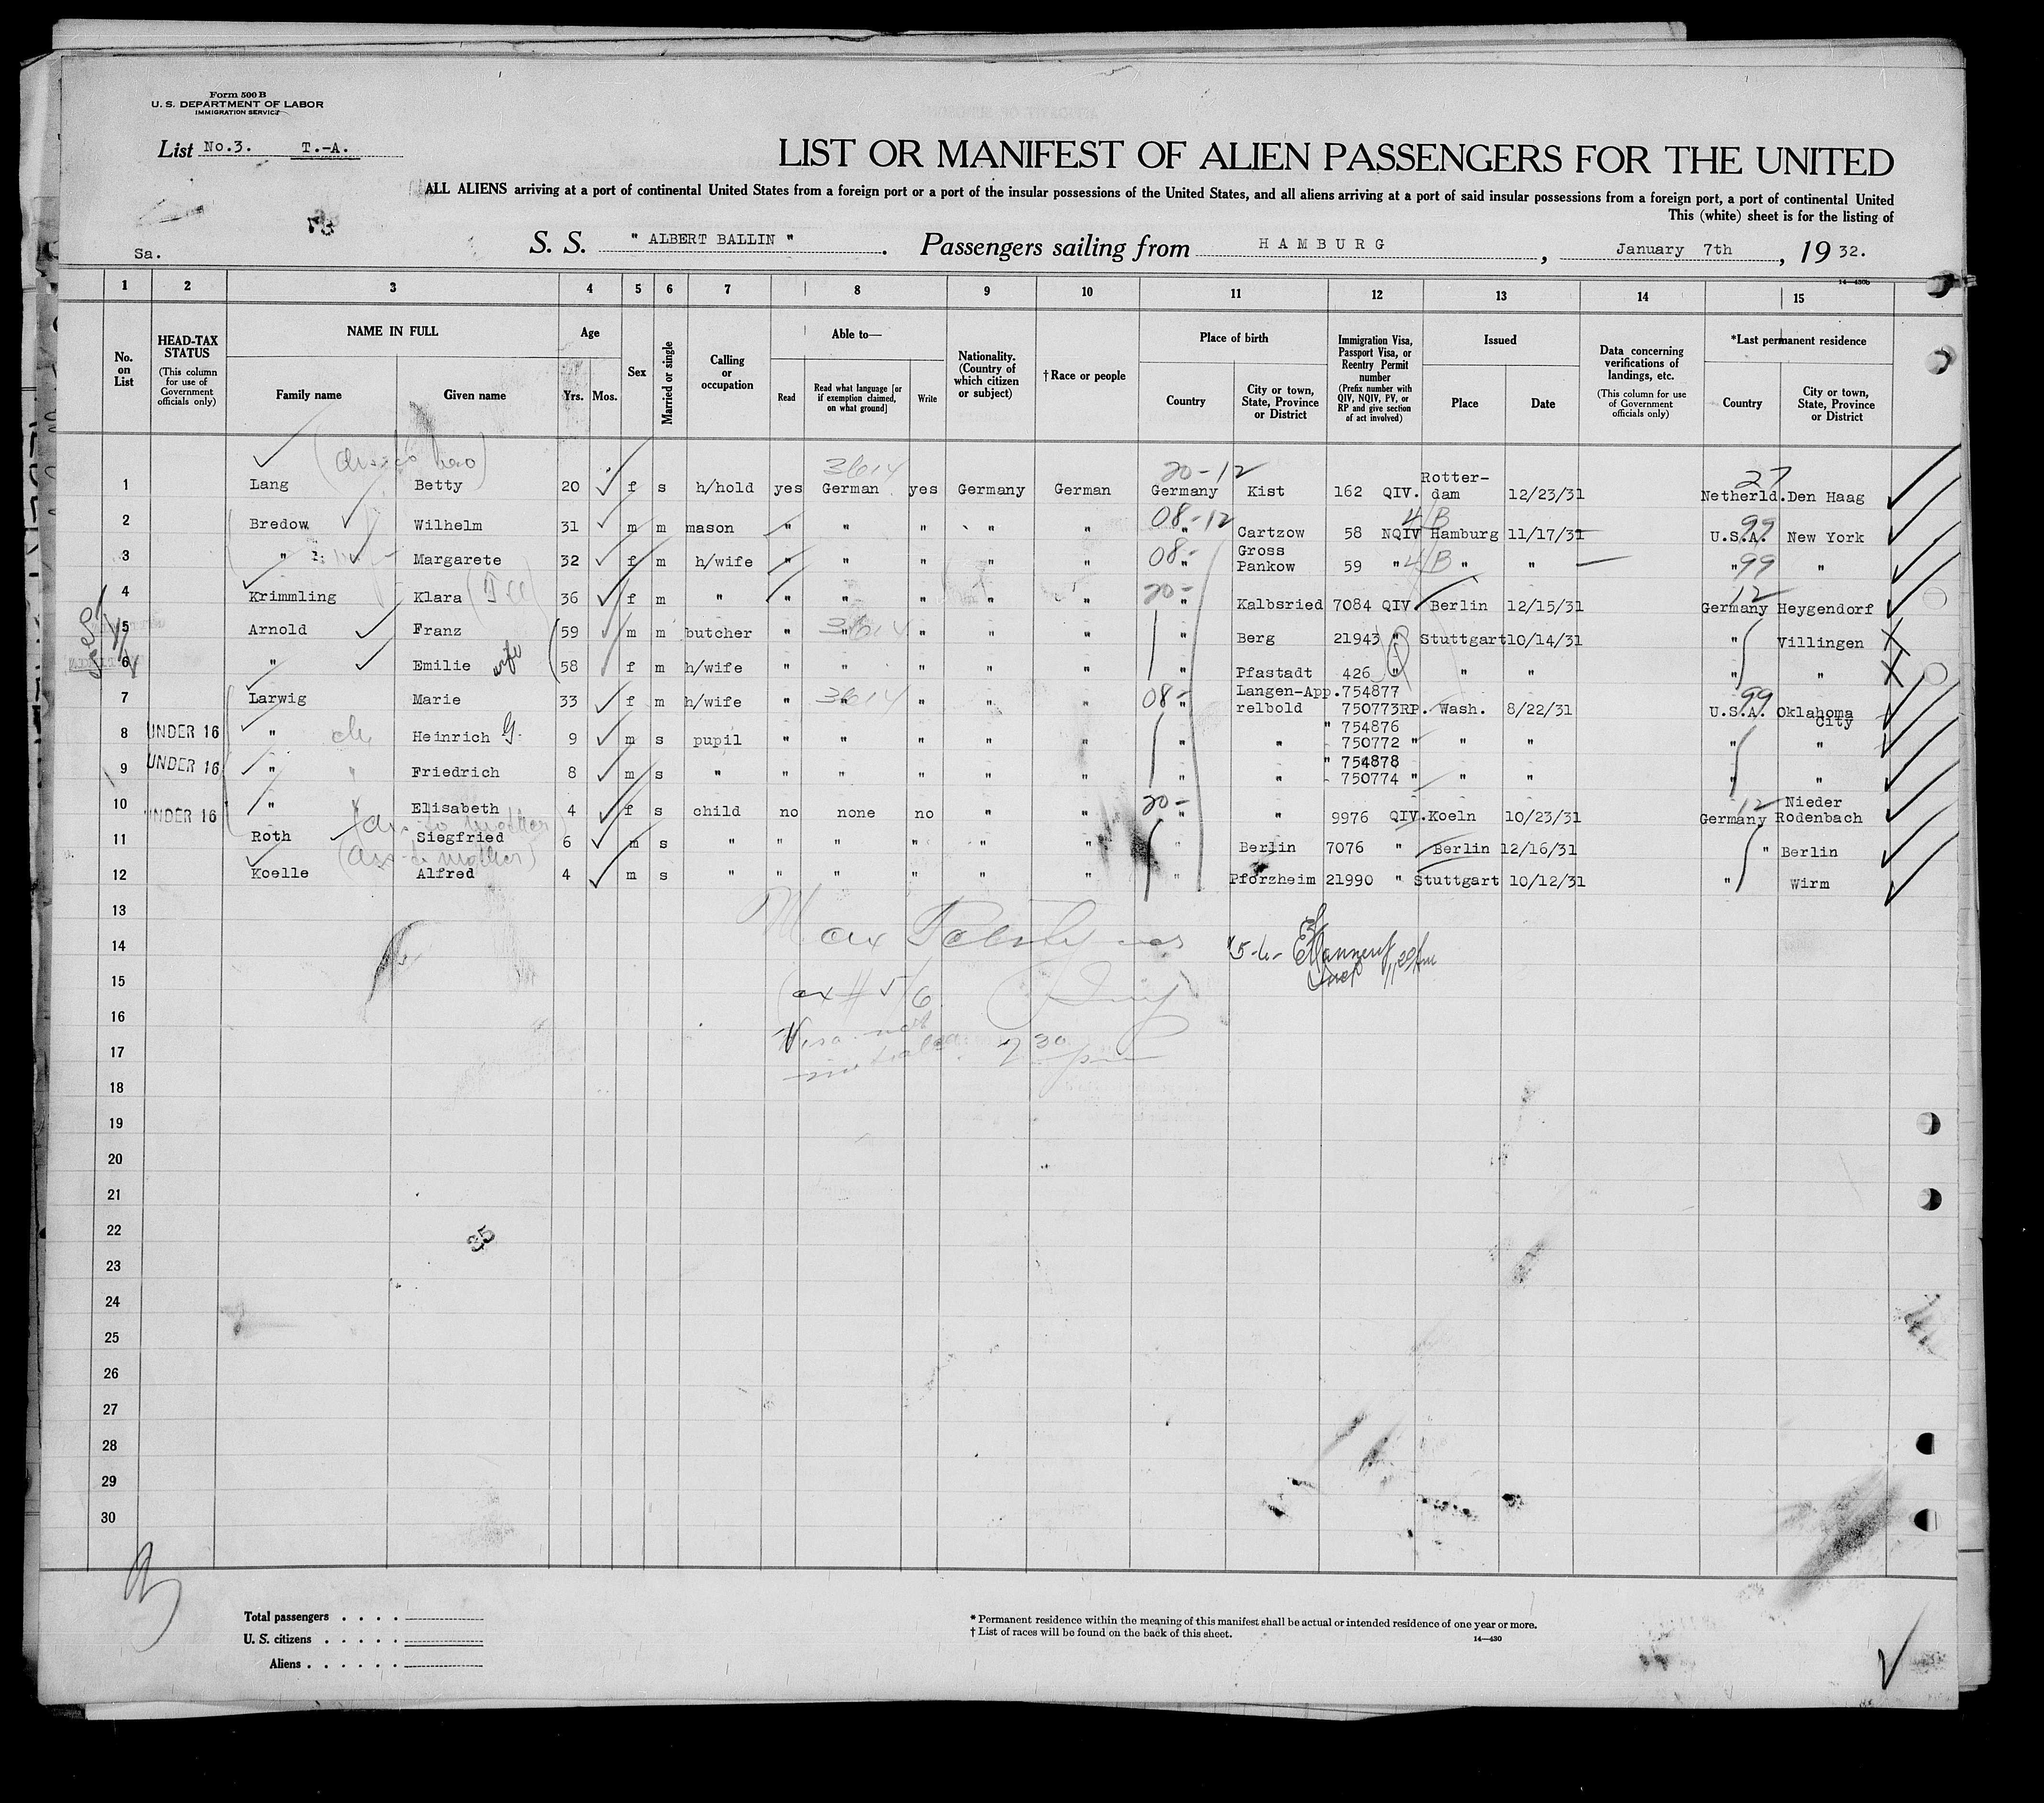 Form 500 B
U. S. DEPARTMENT OF LABOR
IMMIGRATION SERVICE
List No.3. T.-A.
LIST OR MANIFEST OF ALIEN PASSENGERS FOR THE UNITED
ALL ALIENS arriving at a port of continental United States from a foreign port or a port of the insular possessions of the United States, and all aliens arriving at a port of said insular possessions from a foreign port, a port of continental United
This (white) sheet is for the listing of
Sa.
S. S. " ALBERT BALLIN ". Passengers sailing from HAMBURG, January 7th, 1932.
14—430b
1 2 3 4 5 6 7 8 9 10 11 12 13 14 15
No. on List
HEAD-TAX STATUS
(This column for use of Government officials only)
NAME IN FULL
Family name Given name
Age
Yrs. Mos.
Sex
Married or single
Calling or occupation
Able to—
Read
Read what language [or if exemption claimed, on what ground]
Write
Nationality. (Country of which citizen or subject)
†Race or people
Place of birth
Country
City or town, State, Province or District
Immigration Visa, Passport Visa, or Reentry Permit number
(Prefix number with QIV, NQIV, PV, or RP and give section of act involved)
Issued
Place Date
Data concerning verifications of landings, etc.
(This column for use of Government officials only)
*Last permanent residence
Country
City or town, State, Province or District
3614 20-12 27
1 Lang Betty 20 f s h/hold yes German yes Germany German Germany Kist 162 QIV. Rotter-dam 12/23/31 Netherld. Den Haag
08-12 4/B 99
2 Bredow Wilhelm 31 m m mason " " " " " " Cartzow 58 NQIV Hamburg 11/17/31 U.S.A. New York
08- 4/B 99
3 " Margarete 32 f m h/wife " " " " " " Gross Pankow 59 " " " " "
20- 12
4 Krimmling Klara 36 f m " " " " " " " Kalbsried 7084 QIV Berlin 12/15/31 Germany Heygendorf
3614
5 Arnold Franz 59 m m butcher " " " " " " Berg 21943 " Stuttgart 10/14/31 " Villingen
6 " Emilie wife 58 f m h/wife " " " " " " Pfastadt 426 " " " " "
3614 08- 99
7 Larwig Marie 33 f m h/wife " " " " " " Langen-App.relbold 754877 750773RP. Wash. 8/22/31 U.S.A. Oklahoma City
8 UNDER 16 " ch. Heinrich G. 9 m s pupil " " " " " " " " 754876 750772 " " " " "
9 UNDER 16 " " Friedrich 8 m s " " " " " " " " " 754878 750774 " " " " "
20- 12
10 UNDER 16 " Elisabeth 4 f s child no none no " " " 9976 QIV. Koeln 10/23/31 Germany Nieder Rodenbach
to mother
11 Roth Siegfried 6 m s " " " " " " " Berlin 7076 " Berlin 12/16/31 " Berlin
mother
12 Koelle Alfred 4 m s " " " " " " " Pforzheim 21990 " Stuttgart 10/12/31 " Wirm
13
14
15
16
17
18
19
20
21
22
23
24
25
26
27
28
29
30
5-6-
# 5/6
Visa not
7 30 pm
35
Total passengers . . . .
U. S. citizens . . . . .
Aliens . . . . . .
* Permanent residence within the meaning of this manifest shall be actual or intended residence of one year or more.
† List of races will be found on the back of this sheet.
14—430